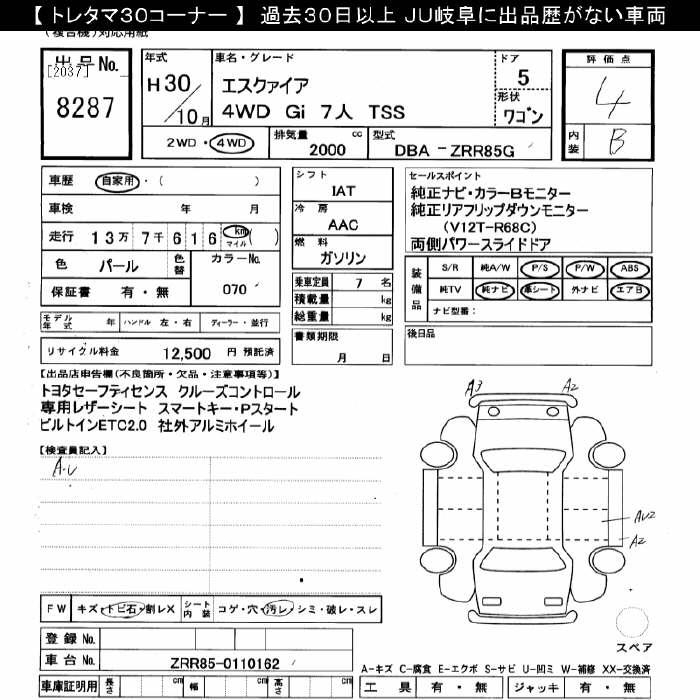 【 トレタマ30コーナー 】 過去30日以上 JU岐阜に出品歴がない車両
(複合機)対応用紙
出品No.
[2037]
8287
年式
H30/10月
車名・グレード
エスクァイア
4WD Gi 7人 TSS
ドア
5
形状
ワゴン
評価点
4
内装
B
2WD・4WD
排気量 2000 cc
型式 DBA - ZRR85G
車歴 自家用・( )
車検 年 月
走行 13万 7千 6 1 6 km マイル ( )
色 パール 色替 カラーNo. 070
保証書 有・無
モデル年式 年 ハンドル 左・右 ディーラー・並行
リサイクル料金 12,500 円 預託済
シフト
IAT
冷房
AAC
燃料
ガソリン
乗車定員 7 名
積載量 kg
総重量 kg
書類期限
月 日
セールスポイント
純正ナビ・カラーBモニター
純正リアフリップダウンモニター
(V12T-R68C)
両側パワースライドドア
装備品
S/R 純A/W P/S P/W ABS
純TV 純ナビ 革シート 外ナビ エアB
ナビ型番:
後日品
【出品店申告欄(不良箇所・欠品・注意事項等)】
トヨタセーフティセンス クルーズコントロール
専用レザーシート スマートキー・Pスタート
ビルトインETC2.0 社外アルミホイール
【検査員記入】
A・U
A3
A2
AU2
A2
スペア
FW キズ・トビ石・割レX シート内装 コゲ・穴・汚レ・シミ・破レ・スレ
登録 No.
車台 No. ZRR85-0110162
車庫証明用 長さ cm 幅 cm 高さ cm
A-キズ C-腐食 E-エクボ S-サビ U-凹ミ W-補修 XX-交換済
工具 有・無 ジャッキ 有・無